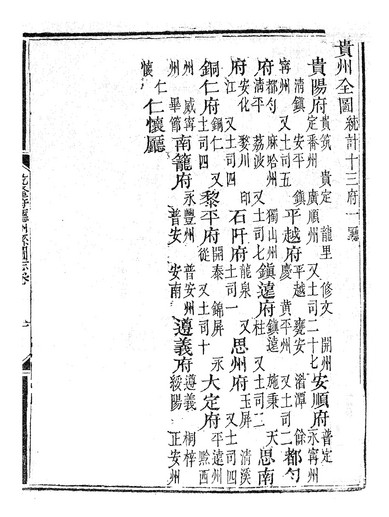 貴州全圖 統計十三府一廳
貴陽府 貴筑 貴定 龍里 修文 開州 定番州 廣順州 又土司二十七 安順府 普定 永寧州
清鎮 安平 鎮 寧州 又土司五 平越府 平越 甕安 湄潭 餘 慶 黃平州 又土司二 都勻
府 都勻 麻哈州 獨山州 清平 荔波 又土司七 鎮遠府 鎮遠 施秉 天 柱 又土司二 思南
府 安化 婺川 印 江 又土司四 石阡府 龍泉 又 思州府 玉屏 清溪 又土司四
銅仁府 銅仁 又 土司四 黎平府 開泰 錦屏 永 從 又土司十 大定府 平遠州 黔西
州 威寧 州 畢節 南籠府 永豐州 普安州 普安 安南 遵義府 遵義 桐梓 綏陽 正安州
仁 懷 仁懷廳